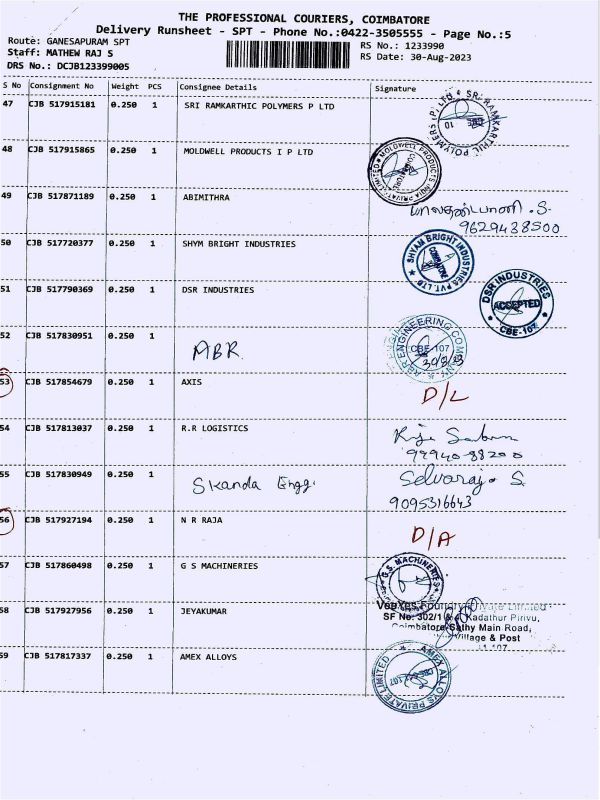 THE PROFESSIONAL COURIERS, COIMBATORE
Delivery Runsheet - SPT - Phone No.:0422-3505555 - Page No.:5
Route: GANESAPURAM SPT
Staff: MATHEW RAJ S
DRS No.: DCJB123399005
RS No.: 1233990
RS Date: 30-Aug-2023
S No Consignment No Weight PCS Consignee Details Signature
47 CJB 517915181 0.250 1 SRI RAMKARTHIC POLYMERS P LTD
48 CJB 517915865 0.250 1 MOLDWELL PRODUCTS I P LTD
49 CJB 517871189 0.250 1 ABIMITHRA
9629438500
50 CJB 517720377 0.250 1 SHYM BRIGHT INDUSTRIES
SHYAM BRIGHT INDUSTRIES PVT. LTD
51 CJB 517790369 0.250 1 DSR INDUSTRIES
DSR INDUSTRIES
ACCEPTED
CBE-107
52 CJB 517830951 0.250 1 ABR
ABR ENGINEERING COMPANY
CBE-107
30/8/23
53 CJB 517854679 0.250 1 AXIS D/L
54 CJB 517813037 0.250 1 R.R LOGISTICS
55 CJB 517830949 0.250 1 Skanda Engg. Selvaraj. S.
9095316643
56 CJB 517927194 0.250 1 N R RAJA D/A
57 CJB 517860498 0.250 1 G S MACHINERIES
G.S. MACHINERIES
58 CJB 517927956 0.250 1 JEYAKUMAR
SF No: 302/1 Kadathur Pirivu,
Coimbatore Sathy Main Road,
Village & Post
59 CJB 517817337 0.250 1 AMEX ALLOYS
AMEX ALLOYS PRIVATE LIMITED